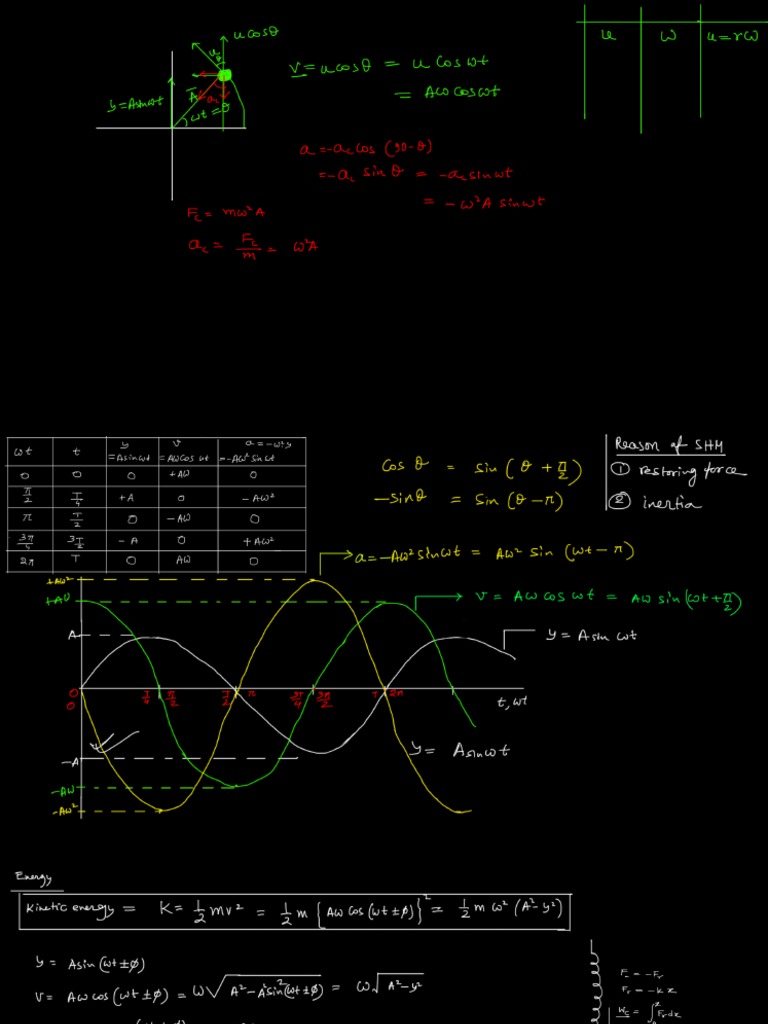 u cosθ
u
ω
u = rω
V = u cosθ = u Cos ωt
= Aω cos ωt
y = A sin ωt
A
a_c
ωt = θ
a = -a_c cos (90-θ)
= -a_c sin θ = -a_c sin ωt
= -ω²A sin ωt
F_c = mω²A
a_c = F_c/m = ω²A
ωt | t | y = A sin ωt | v = Aω Cos ωt | a = -ω²y = -Aω² sin ωt
0 | 0 | 0 | +Aω | 0
π/2 | T/4 | +A | 0 | -Aω²
π | T/2 | 0 | -Aω | 0
3π/4 | 3T/2 | -A | 0 | +Aω²
2π | T | 0 | Aω | 0
Reason of SHM
① restoring force
② inertia
cos θ = sin (θ + π/2)
-sinθ = Sin (θ - π)
a = -Aω² sin ωt = Aω² sin (ωt - π)
V = Aω cos ωt = Aω sin (ωt + π/2)
y = A sin ωt
+Aω²
+Aω
A
0
0
T/4 π/2 T/2 π 3T/4 3π/2 T 2π
t, ωt
-A
-Aω
-Aω²
y = A sin ωt
Energy
Kinetic energy = K = 1/2 mv² = 1/2 m {Aω cos (ωt ± ϕ)}² = 1/2 m ω² (A² - y²)
y = A sin (ωt ± ϕ)
V = Aω cos (ωt ± ϕ) = ω √(A² - A² sin² (ωt ± ϕ)) = ω √(A² - y²)
= -F_r
F_r = -k x
= ∫ F_r dx